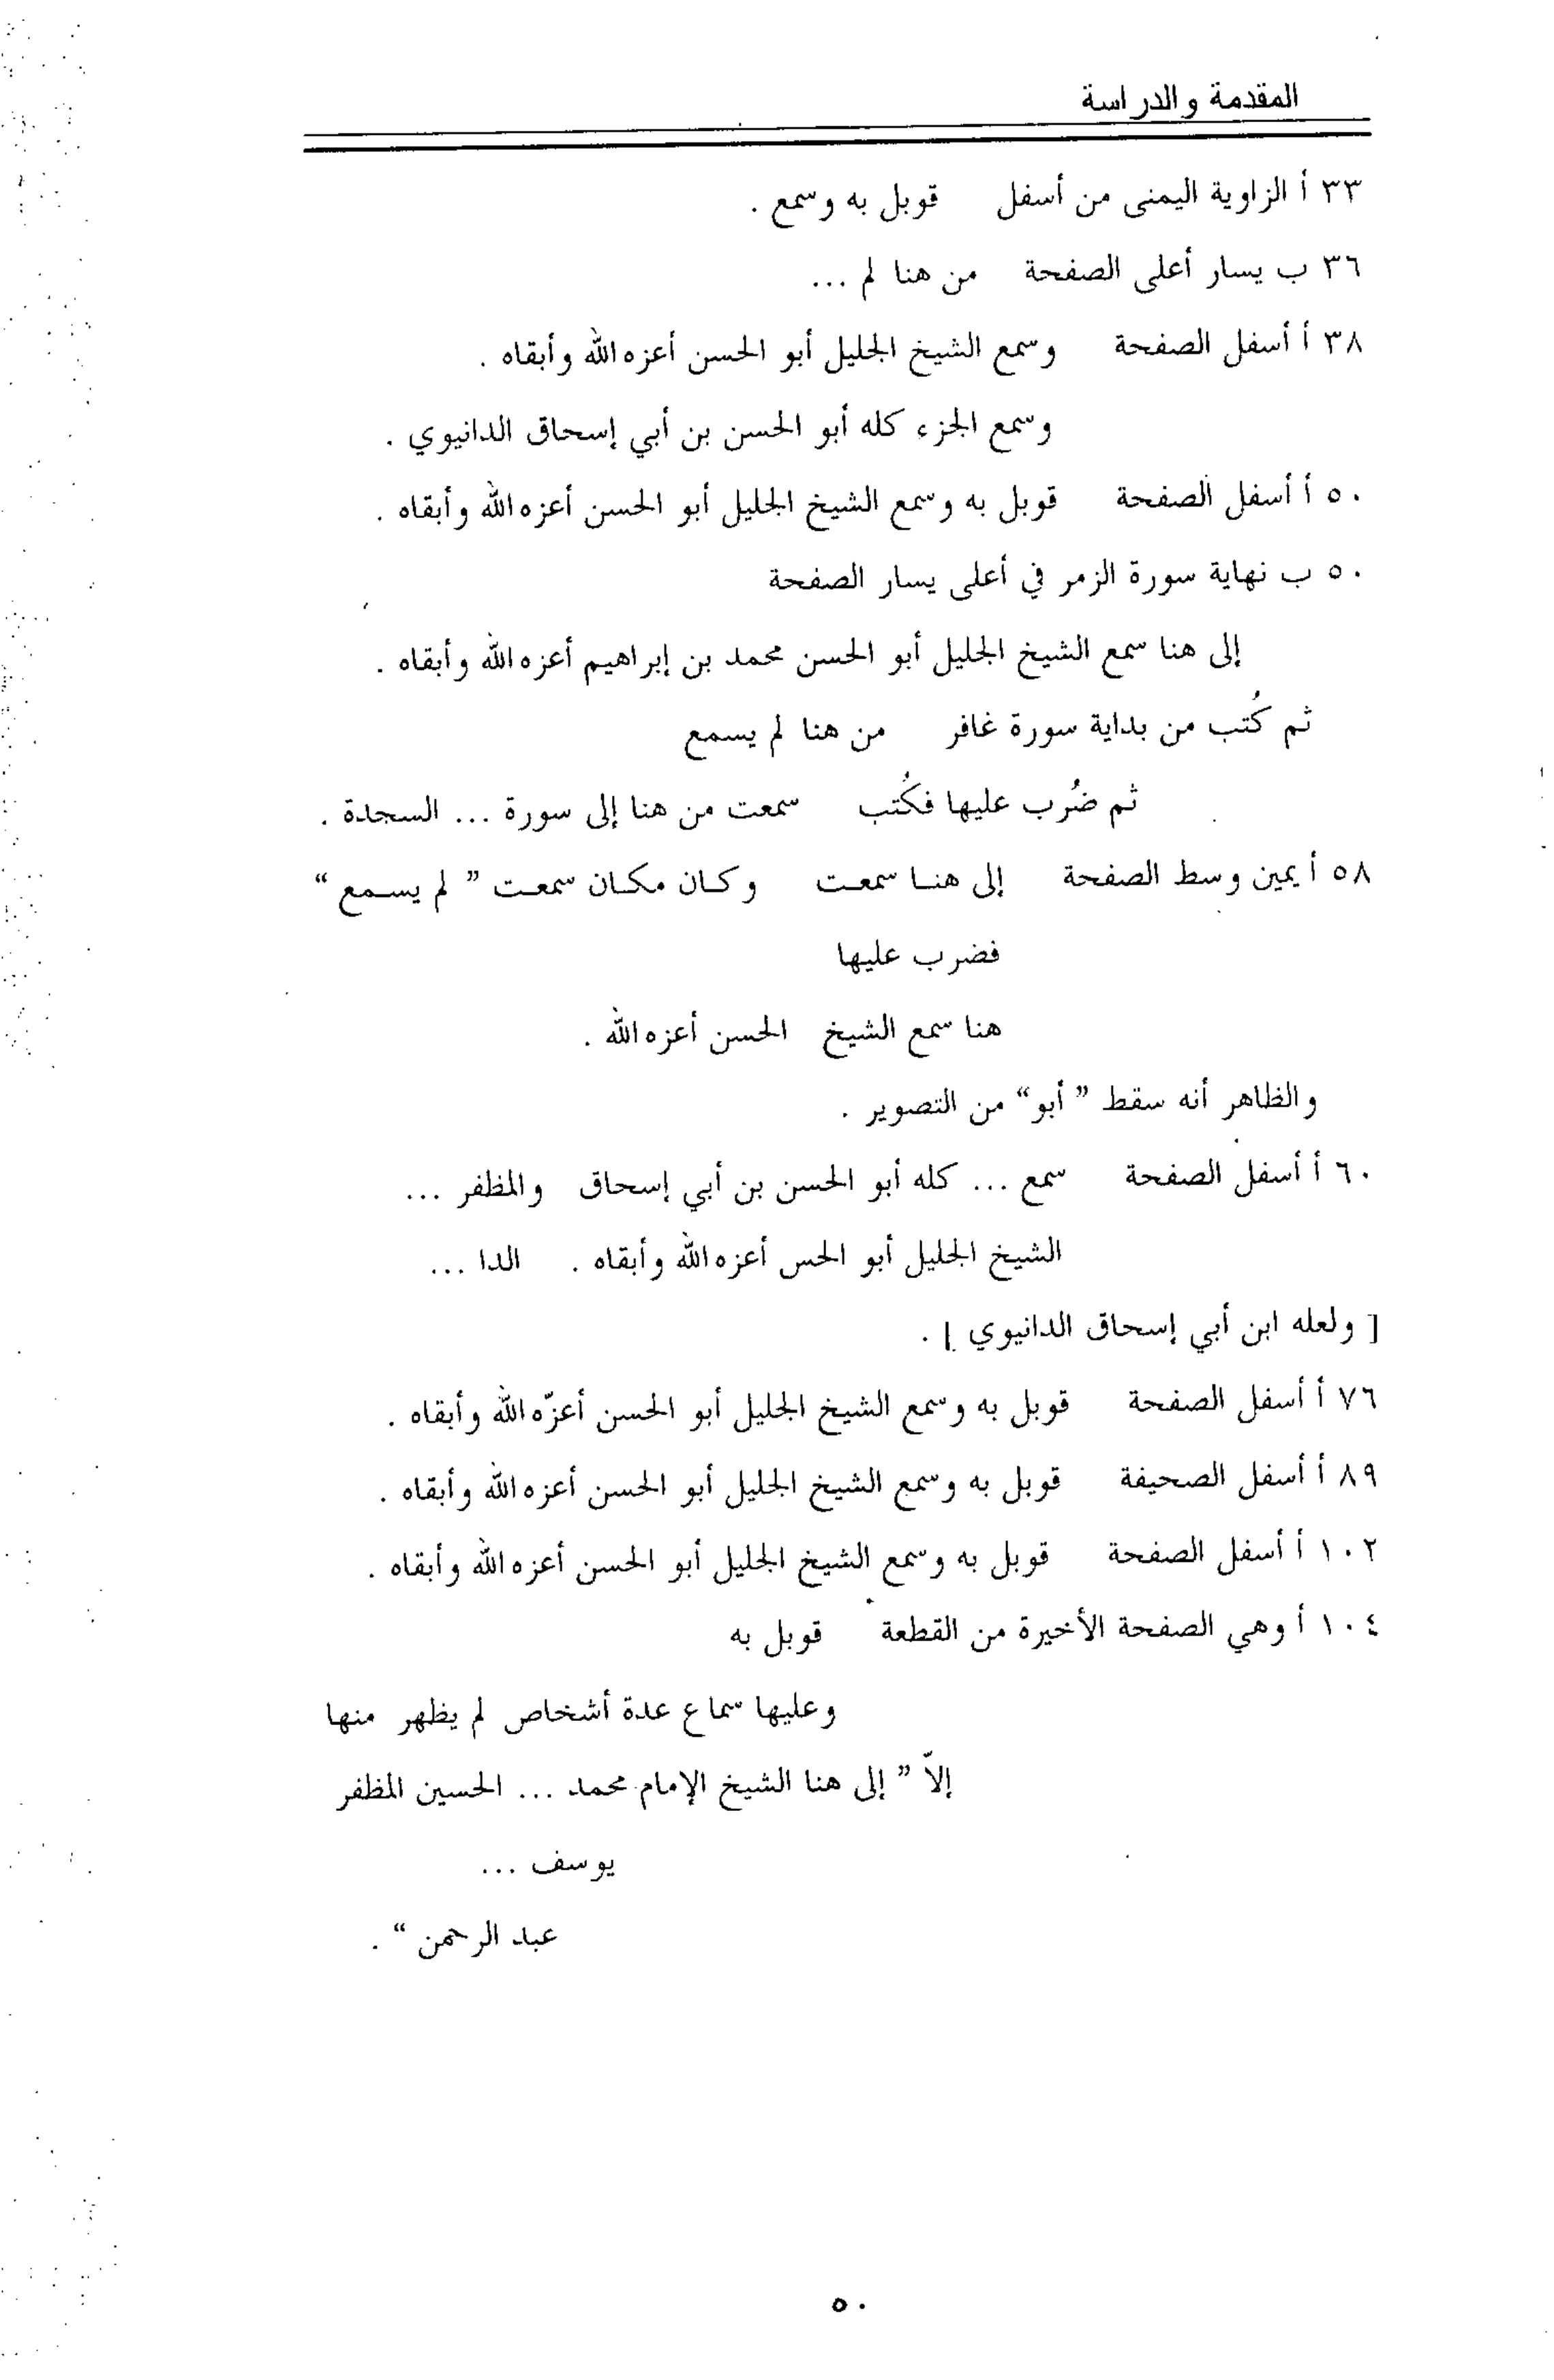 المقدمة والدراسة
٣٣ أ الزاوية اليمنى من أسفل قوبل به وسمع .
٣٦ ب يسار أعلى الصفحة من هنا لم ...
٣٨ أ أسفل الصفحة وسمع الشيخ الجليل أبو الحسن أعزه الله وأبقاه .
وسمع الجزء كله أبو الحسن بن أبي إسحاق الدانيوي .
٥٠ أ أسفل الصفحة قوبل به وسمع الشيخ الجليل أبو الحسن أعزه الله وأبقاه .
٥٠ ب نهاية سورة الزمر في أعلى يسار الصفحة
إلى هنا سمع الشيخ الجليل أبو الحسن محمد بن إبراهيم أعزه الله وأبقاه .
ثم كُتب من بداية سورة غافر من هنا لم يسمع
ثم ضُرب عليها فكُتب سمعت من هنا إلى سورة ... السجدة .
٥٨ أ يمين وسط الصفحة إلى هنـا سمعـت وكـان مكـان سمعـت ” لم يسـمع “
فضرب عليها
هنا سمع الشيخ الحسن أعزه الله .
والظاهر أنه سقط ” أبو“ من التصوير .
٦٠ أ أسفل الصفحة سمع ... كله أبو الحسن بن أبي إسحاق والمظفر ...
الشيخ الجليل أبو الحس أعزه الله وأبقاه . الدا ...
[ ولعله ابن أبي إسحاق الدانيوي ] .
٧٦ أ أسفل الصفحة قوبل به وسمع الشيخ الجليل أبو الحسن أعزّه الله وأبقاه .
٨٩ أ أسفل الصحيفة قوبل به وسمع الشيخ الجليل أبو الحسن أعزه الله وأبقاه .
١٠٢ أ أسفل الصفحة قوبل به وسمع الشيخ الجليل أبو الحسن أعزه الله وأبقاه .
١٠٤ أ وهي الصفحة الأخيرة من القطعة قوبل به
وعليها سماع عدة أشخاص لم يظهر منها
إلاّ ” إلى هنا الشيخ الإمام محمد ... الحسين المظفر
يوسف ...
عبد الرحمن “ .
٥٠